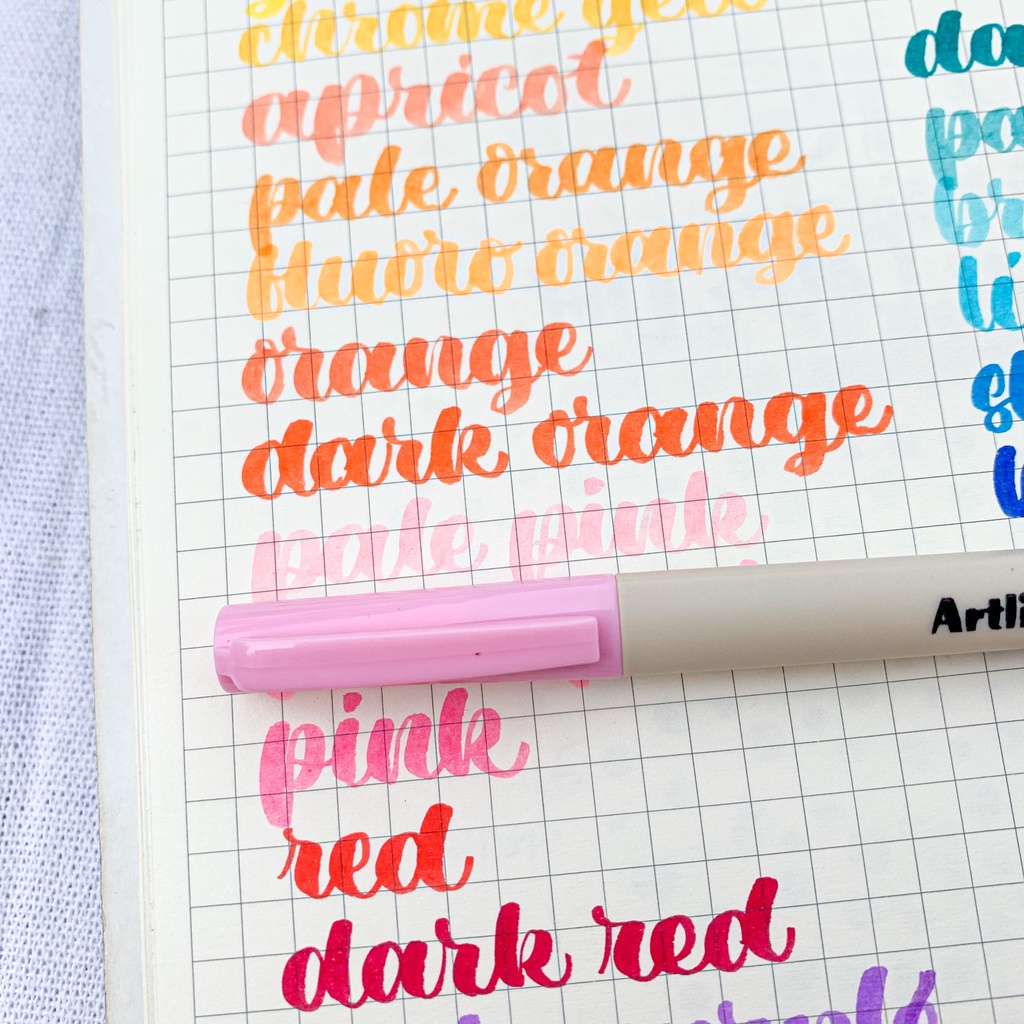 chrome yell
apricot
pale orange
fluoro orange
orange
dark orange
pale pink
Artli
pink
red
dark red
da
pa
br
li